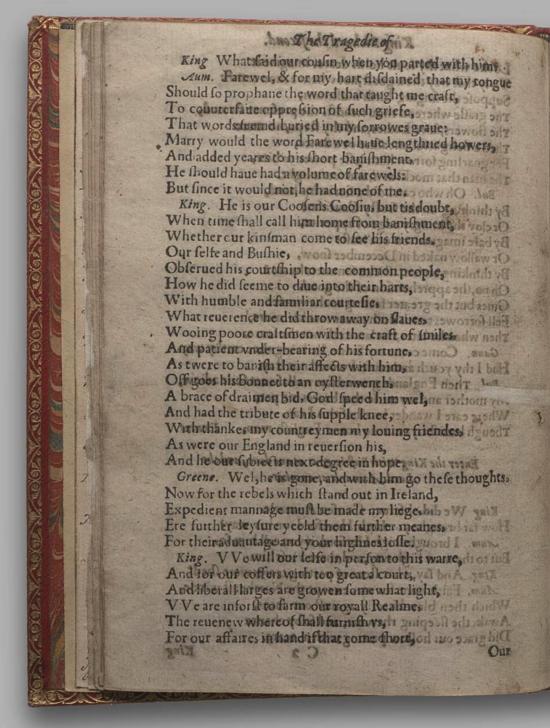 The Tragedie of
King What said our cousin when you parted with him?
Aum. Farewel, & for my hart disdained that my tongue
Should so prophane the word that taught me craft,
To counterfaite oppression of such griefe,
That words seemd buried in my sorrowes graue:
Marry would the word Farewel haue lengthned howers,
And added yeares to his short banishment,
He should haue had a volume of farewels:
But since it would not, he had none of me.
King. He is our Coosens Coosin, but tis doubt,
When time shall call him home from banishment,
Whether our kinsman come to see his friends.
Our selfe and Bushie,
Obserued his courtship to the common people,
How he did seeme to diue into their harts,
With humble and familiar courtesie,
What reuerence he did throw away on slaues,
Wooing poore craftsmen with the craft of smiles
And patient vnder-bearing of his fortune,
As twere to banish their affects with him,
Off goes his bonnet to an oysterwench,
A brace of draimen bid, God speed him wel,
And had the tribute of his supple knee,
With thankes my countreymen my louing friendes,
As were our England in reuersion his,
And he our subiects next degree in hope.
Greene. Wel, he is gone, and with him go these thoughts.
Now for the rebels which stand out in Ireland,
Expedient mannage must be made my liege,
Ere further leysure yeeld them further meanes,
For their aduantage and your highnes losse.
King. VVe will our selfe in person to this warre,
And for our coffers with too great a court,
And liberall larges are growen somewhat light,
VVe are inforst to farm our royall Realme,
The reuenew whereof shall furnish vs,
For our affaires in hand if that come short,
Our